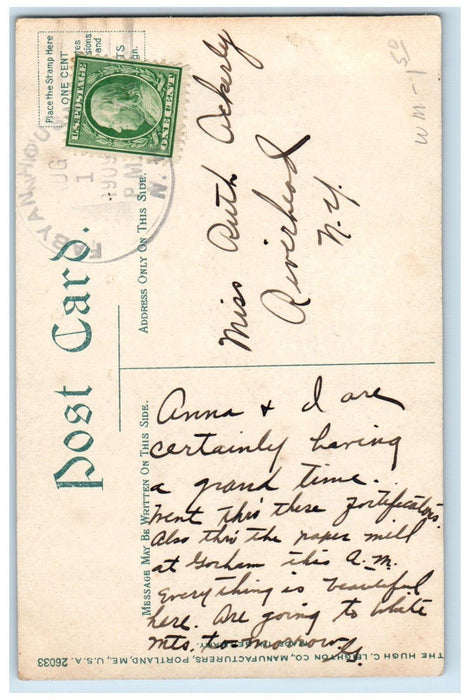 Place the Stamp Here
ONE CENT
U.S. POSTAGE
ONE CENT
FABYAN HOU
1
1909
P.M.
N.
WM-1 50
Post Card.
ADDRESS ONLY ON THIS SIDE.
Miss Ruth Ackerly
Riverhead
N.Y.
MESSAGE MAY BE WRITTEN ON THIS SIDE.
Anna & I are
certainly having
a grand time.
Went thro these fortifications.
Also thro the paper mill
at Gorham this A.M.
Everything is beautiful
here. Are going to White
Mts. to-morrow.
THE HUGH C. LEIGHTON CO., MANUFACTURERS, PORTLAND, ME., U.S.A. 26033